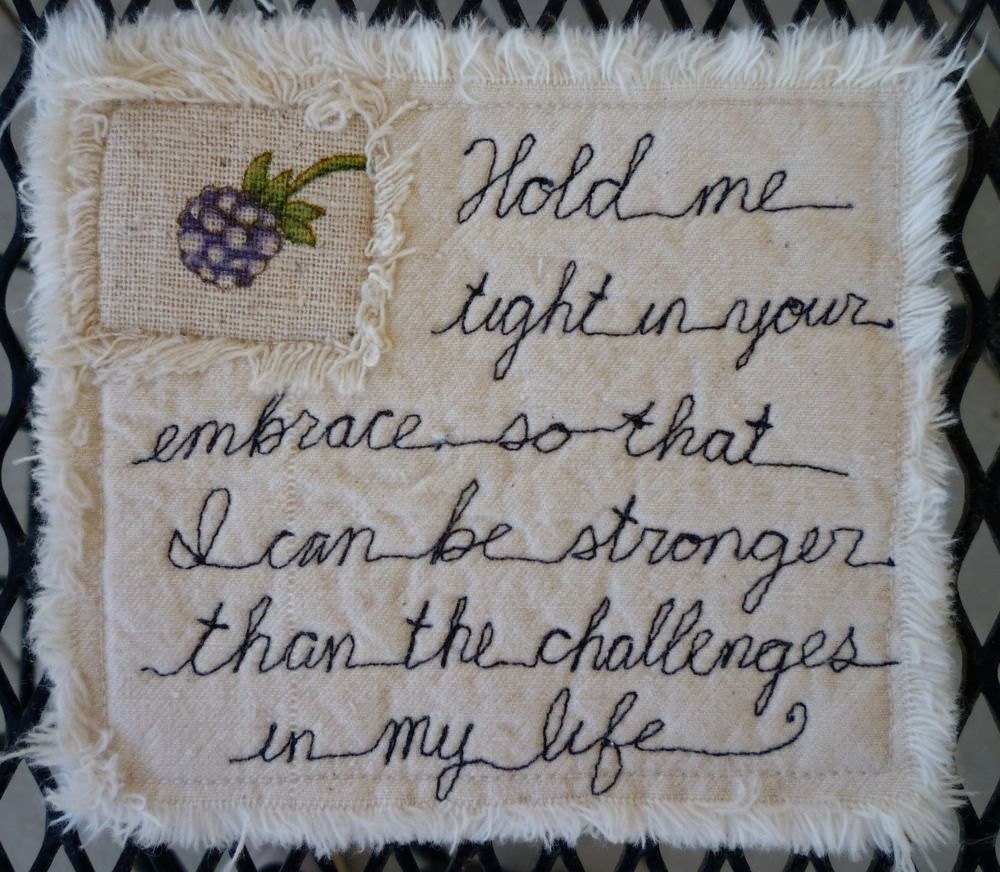 Hold me
tight in your
embrace so that
I can be stronger
than the challenges
in my life